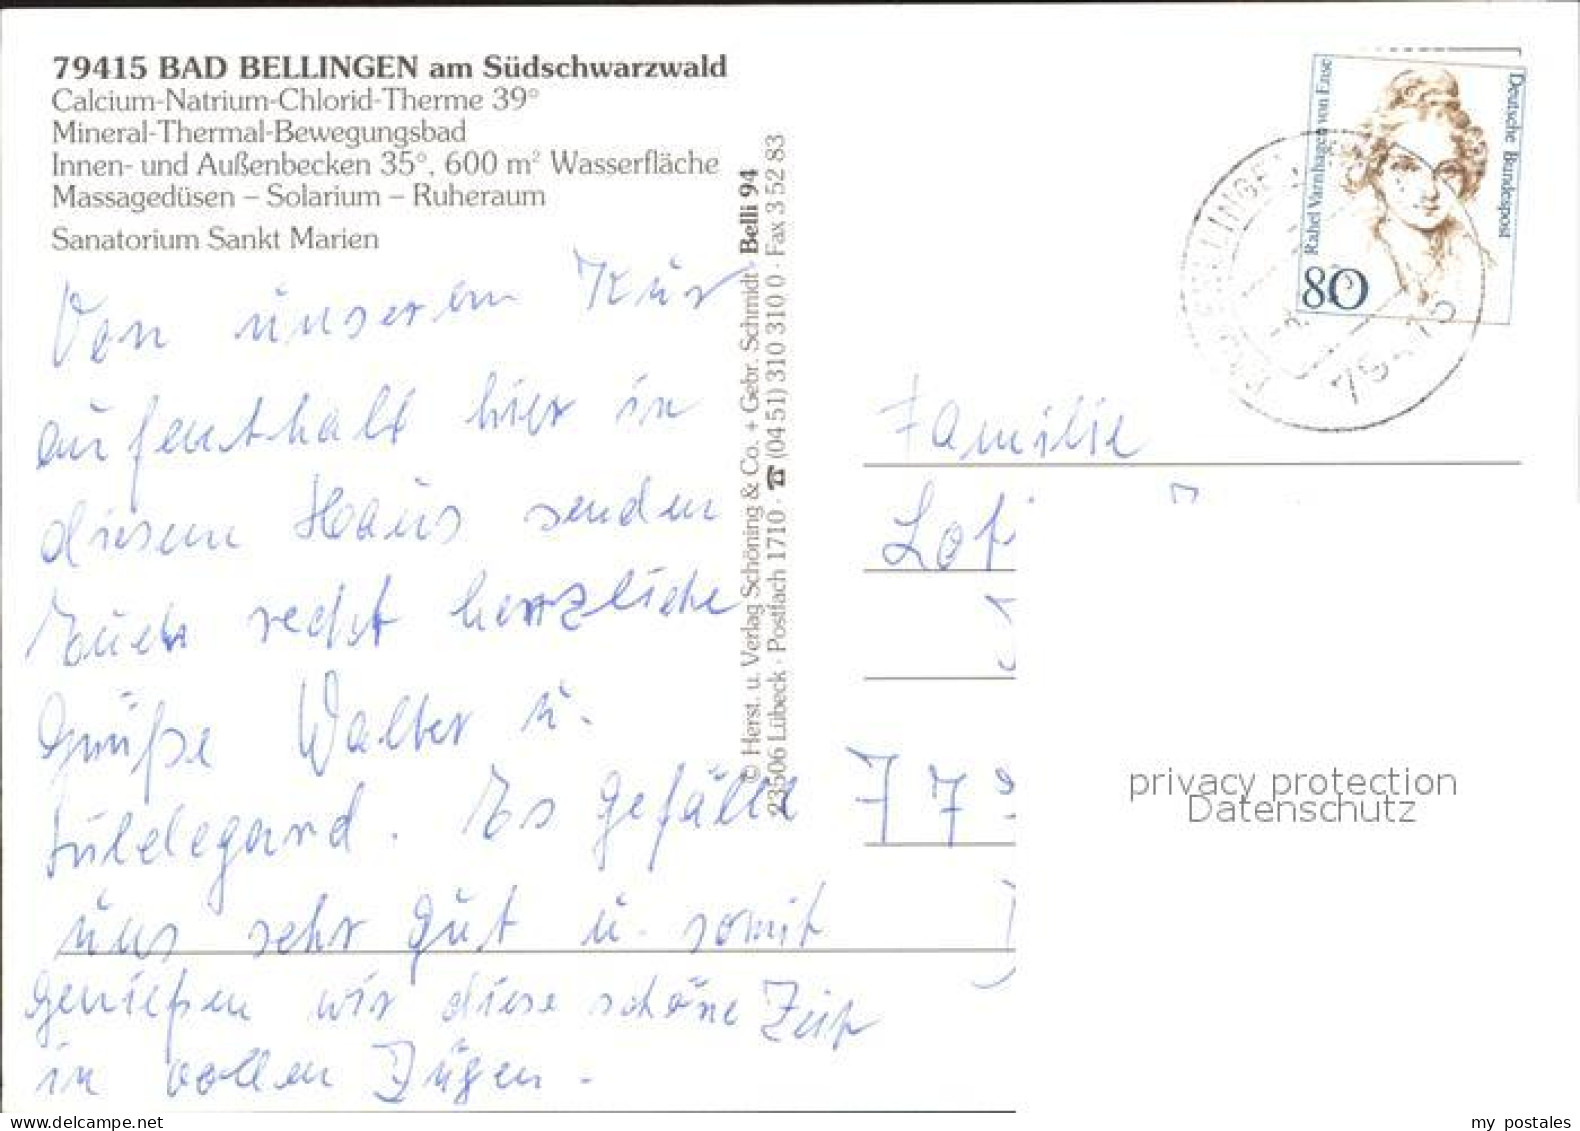 79415 BAD BELLINGEN am Südschwarzwald
Calcium-Natrium-Chlorid-Therme 39°
Mineral-Thermal-Bewegungsbad
Innen- und Außenbecken 35°, 600 m² Wasserfläche
Massagedüsen – Solarium – Ruheraum
Sanatorium Sankt Marien
Von unserem Kur
aufenthalt hier in
diesem Haus senden
Euch recht herzliche
Grüße Walter u.
Hildegard. Es gefällt
uns sehr gut u. somit
genießen wir diese schöne Zeit
in vollen Zügen.
© Herst. u. Verlag Schöning & Co. + Gebr. Schmidt · Belli 94
23506 Lübeck · Postfach 1710 · ☎ (04 51) 310 310 0 · Fax 3 52 83
Rahel Varnhagen von Ense
Deutsche Bundespost
80
Familie
77
privacy protection
Datenschutz
my postales